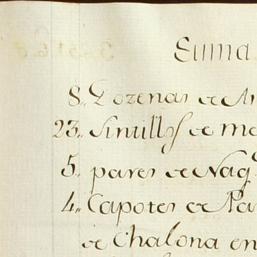 Suma
8. Dozenas de
23. Sinulls de
5. pares de Nag
4. Capotes de Pa
de Chalona en